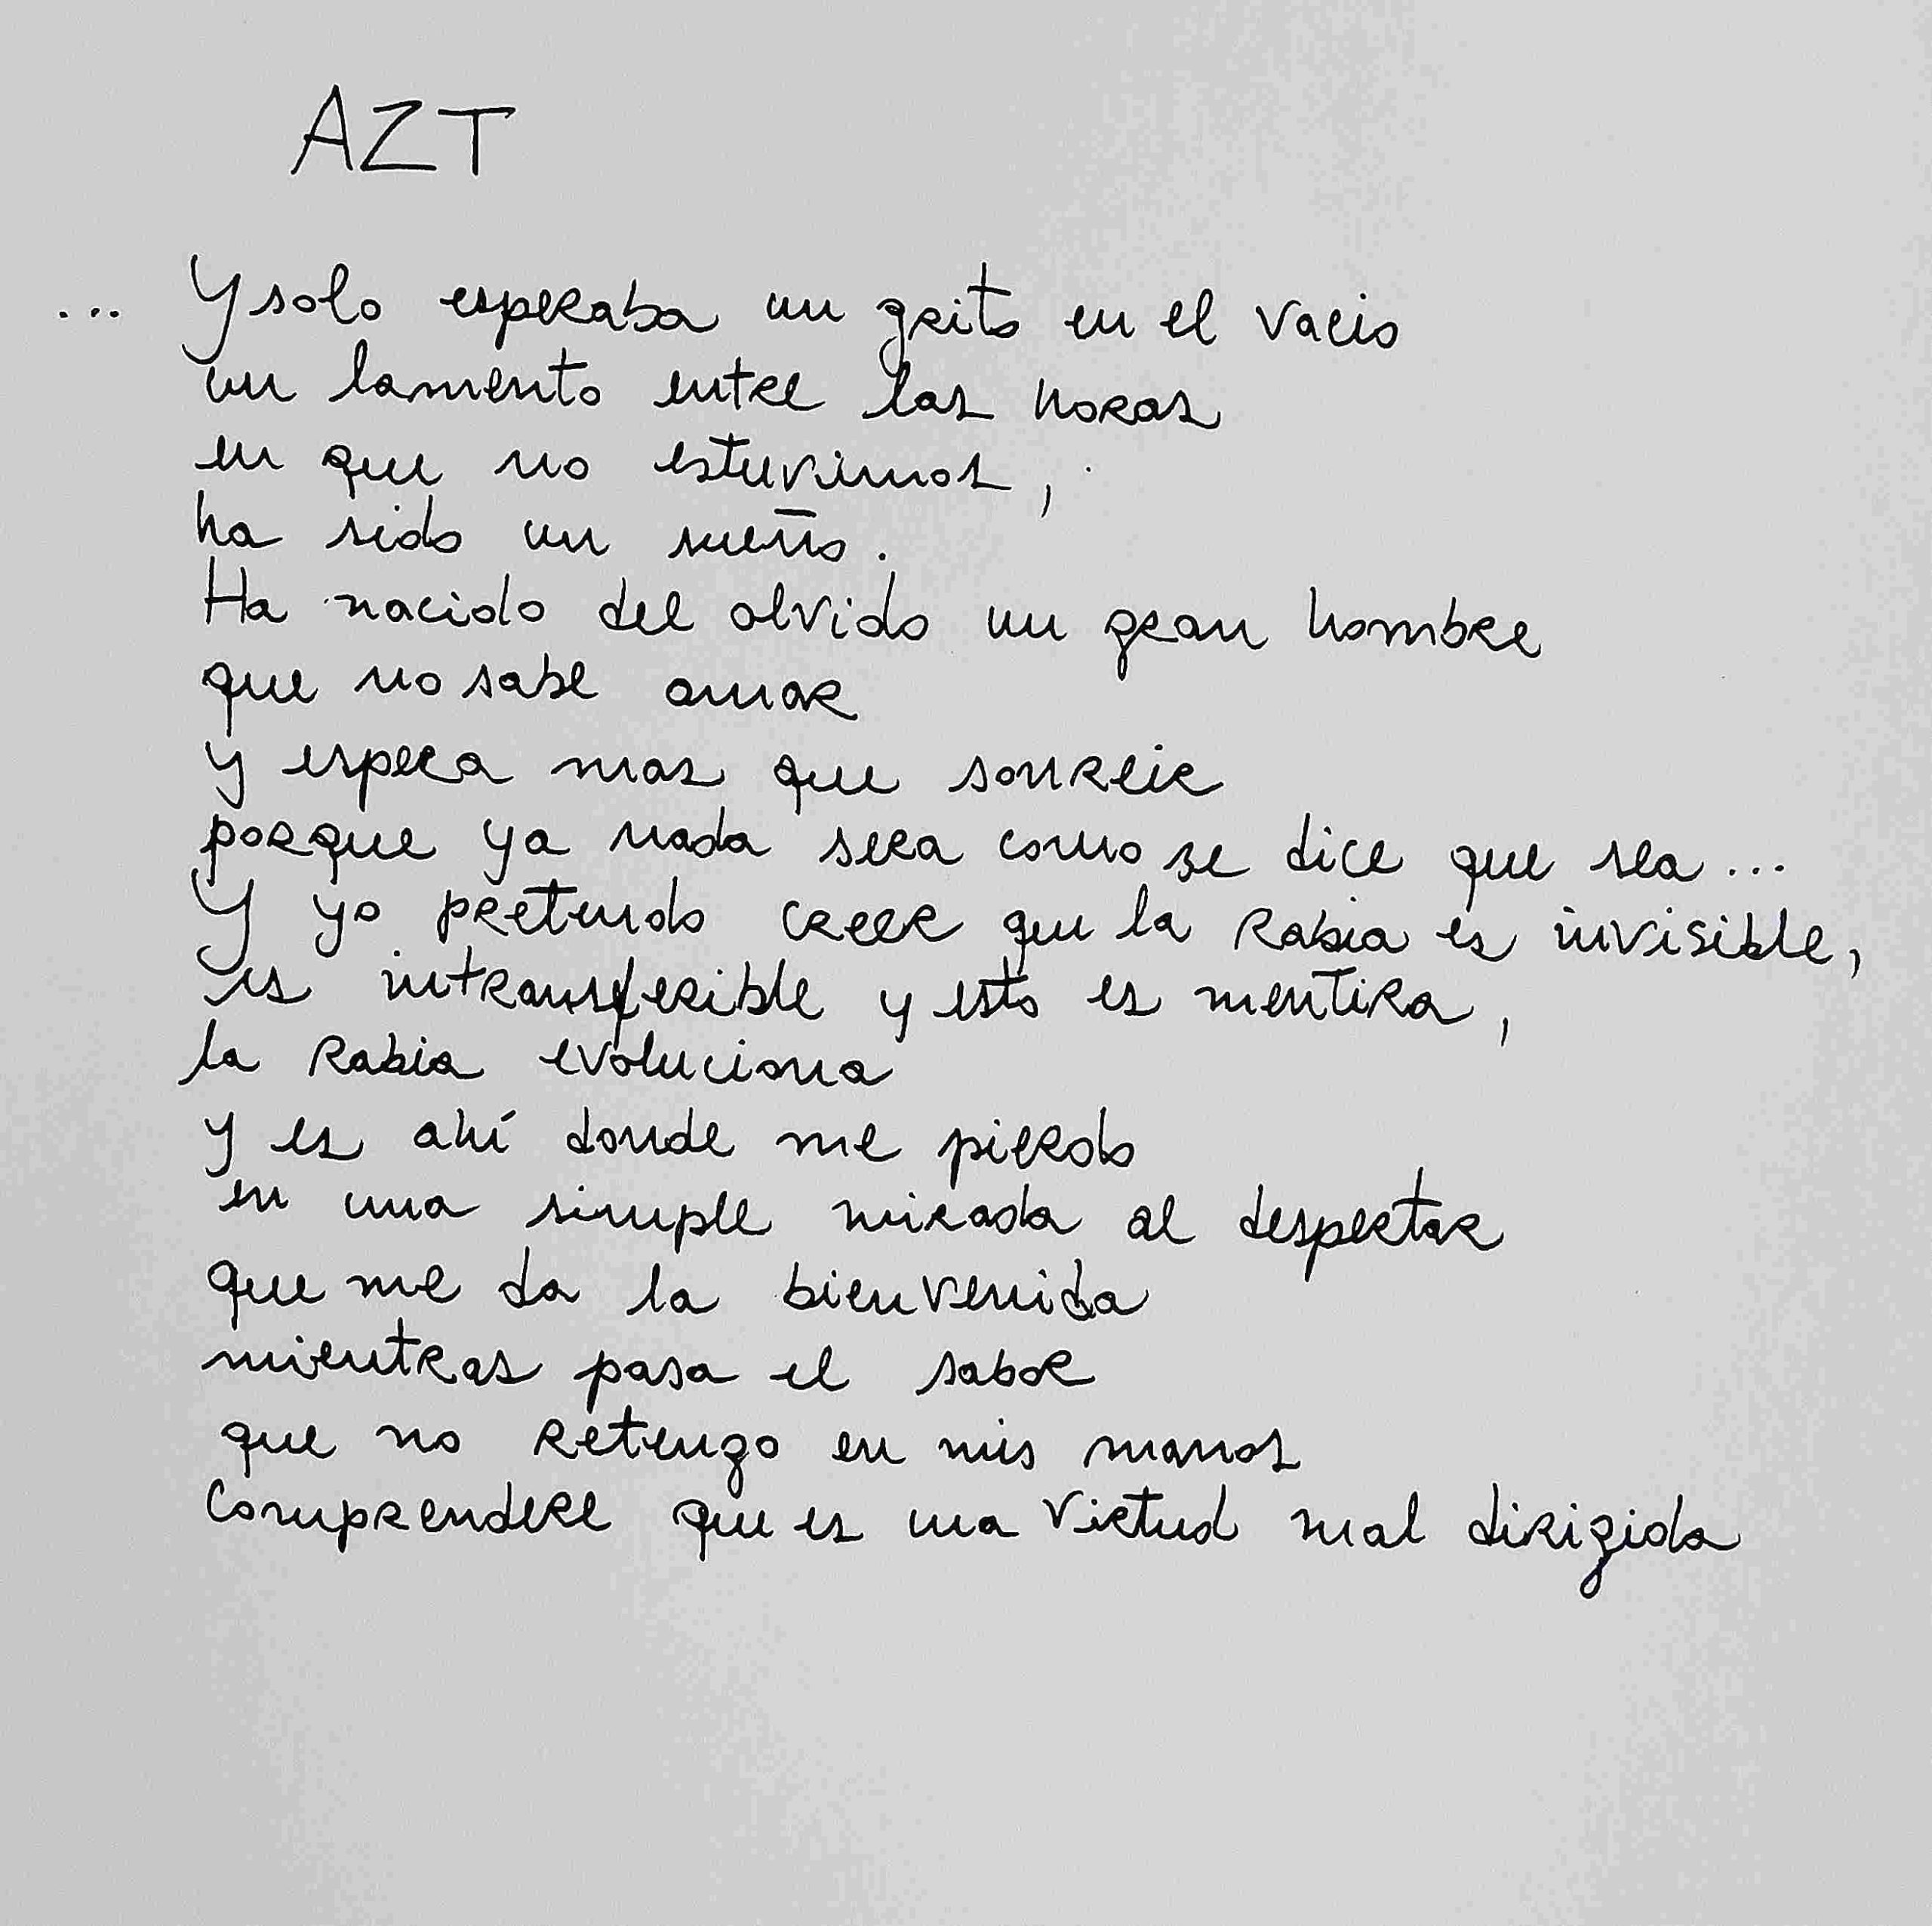 AZT
... Y solo esperaba un grito en el vacio
un lamento entre las horas
en que no estuvimos,
ha sido un sueño.
Ha nacido del olvido un gran hombre
que no sabe amar
y espera mas que sonreir
porque ya nada sera como se dice que sea...
Y yo pretendo creer que la rabia es invisible,
es intransferible y esto es mentira,
la rabia evoluciona
y es ahí donde me pierdo
en una simple mirada al despertar
que me da la bienvenida
mientras pasa el sabor
que no retengo en mis manos
Comprendere que es una virtud mal dirigida